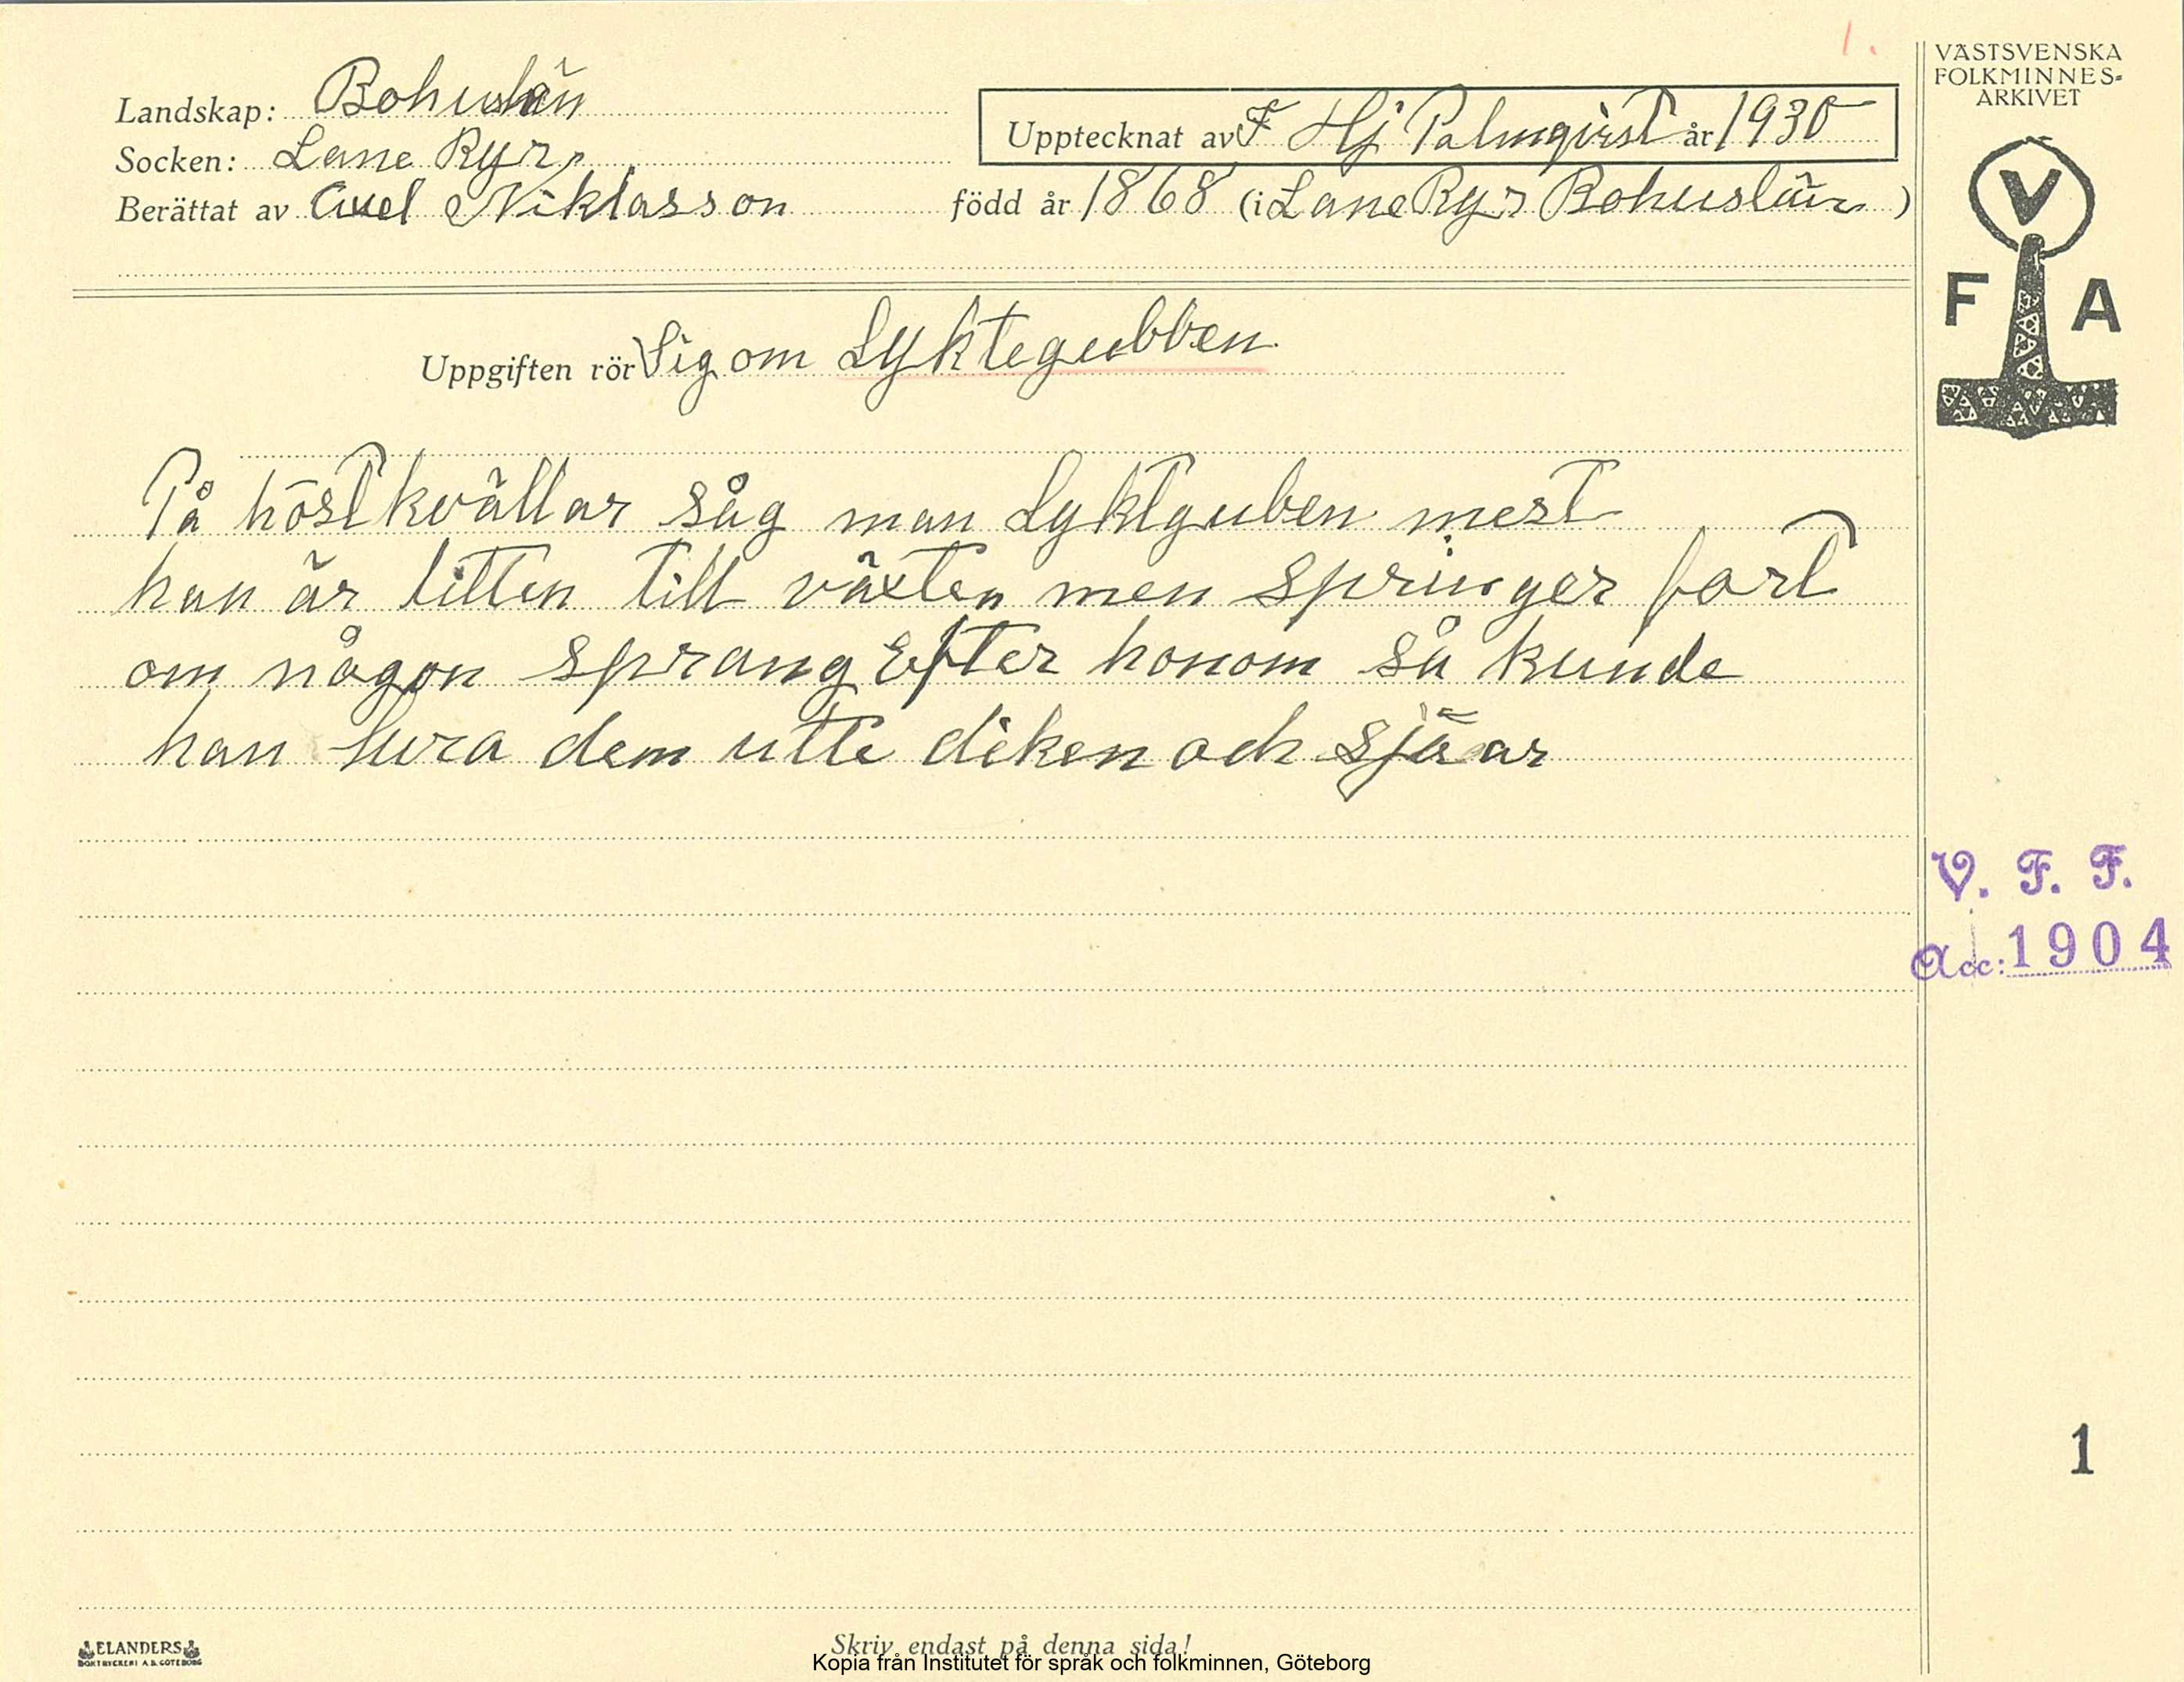 1.
VÄSTSVENSKA
FOLKMINNES-
ARKIVET
Landskap: Bohuslän
Upptecknat av F Hj Palmqvist år 1930
Socken: Lane Ryr
Berättat av Axel Niklasson född år 1868 (i Lane Ryr Bohuslän)
V
F A
Uppgiften rör Sig om Lyktegubben
På höstkvällar såg man Lyktguben mest
han är litten till växten men springer fort
om någon sprang Efter honom så kunde
han lura dem utti diken och sjöar
V. F. F.
Acc: 1904
1
ELANDERS
BOKTRYCKERI A.B. GÖTEBORG
Skriv endast på denna sida!
Kopia från Institutet för språk och folkminnen, Göteborg